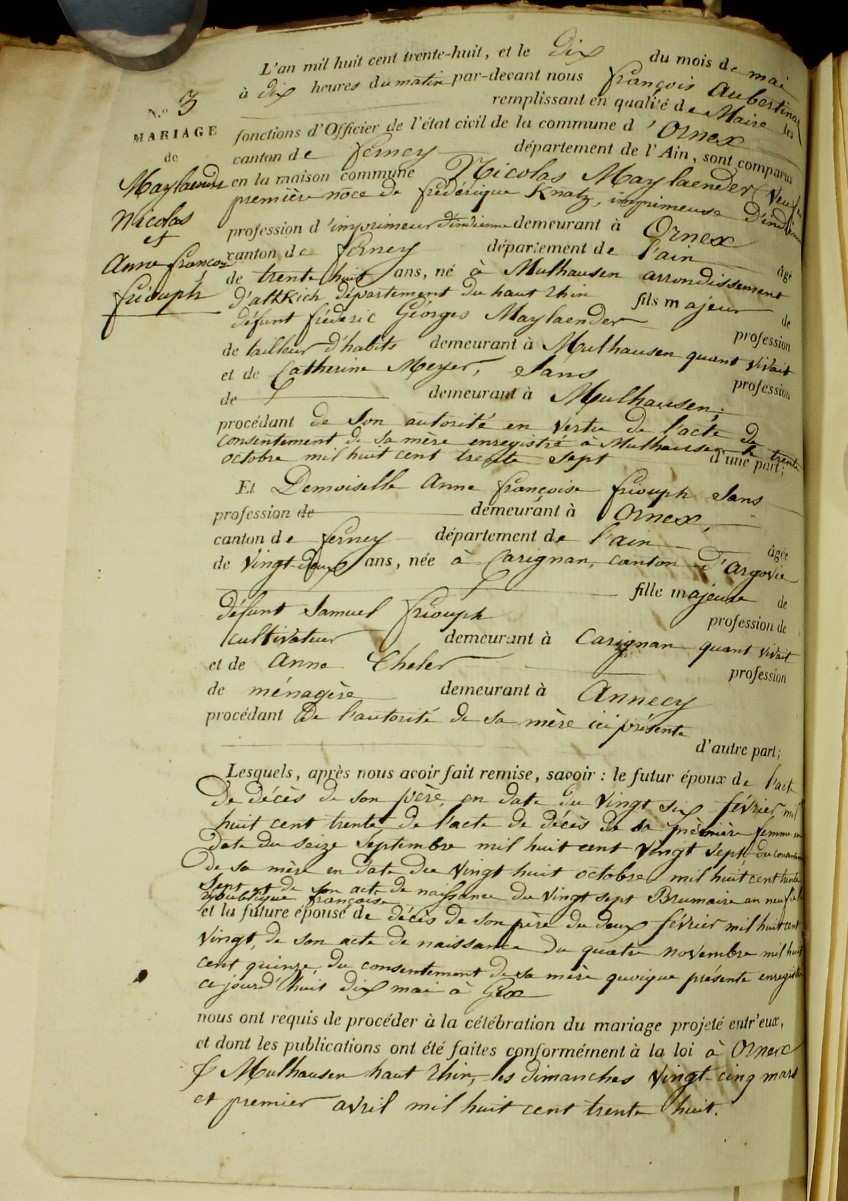 L'an mil huit cent trente-huit, et le dix du mois de mai
à dix heures du matin par-devant nous François Aubertin
remplissant en qualité de Maire les
N.° 3
MARIAGE
de
Maylaender
Nicolas
et
Anne françoise
friouph
fonctions d'Officier de l'état civil de la commune d'Ornex
canton de ferney département de l'Ain, sont comparus
en la maison commune Nicolas Maylaender veuf en
première noce de frédérique Knatz, imprimeuse d'indienne
profession d'imprimeur d'indienne demeurant à Ornex
canton de ferney département de l'ain âgé
de trente huit ans, né à Mulhausen arrondissement
d'altkich département du haut Rhin fils majeur de
défunt fréderic Géorges Maylaender profession
de tailleur d'habits demeurant à Mulhausen quant vivait
et de Catherine Meyer, sans profession
de demeurant à Mulhausen;
procédant de son autorité en vertu de l'acte de
consentement de sa mère enregistré à Mulhausen le trente
octobre mil huit cent trente sept d'une part;
Et Demoiselle Anne françoise friouph sans
profession de demeurant à Ornex,
canton de ferney département de l'ain âgée
de vingt-deux ans, née à Carignan, canton d'Argovie
fille majeure de
défunt Samuel friouph profession de
cultivateur demeurant à Carignan quant vivait
et de Anne Cheler profession
de ménagère demeurant à Annecy
procédant de l'autorité de sa mère ici présente
d'autre part;
Lesquels, après nous avoir fait remise, savoir : le futur époux de l'act
De décès de son père, en date du vingt six février mil
huit cent trente de l'acte de décès de sa première femme en
date du seize septembre mil huit cent vingt sept du consentement
de sa mère en date du vingt huit octobre mil huit cent trente
sept et de son acte de naissance du vingt sept Brumaire an neuf de la
république françoise
et la future épouse de décès de son père du deux février mil huit cent
vingt, de son acte de naissance du quatre novembre mil huit
cent quinze du consentement de sa mère quoique présente enregistré
ce jourd'huit dix mai à Gex
nous ont requis de procéder à la célébration du mariage projeté entr'eux,
et dont les publications ont été faites conformément à la loi à Ornex
& Mulhausen haut Rhin, les dimanches vingt-cinq mars
et premier avril mil huit cent trente huit.